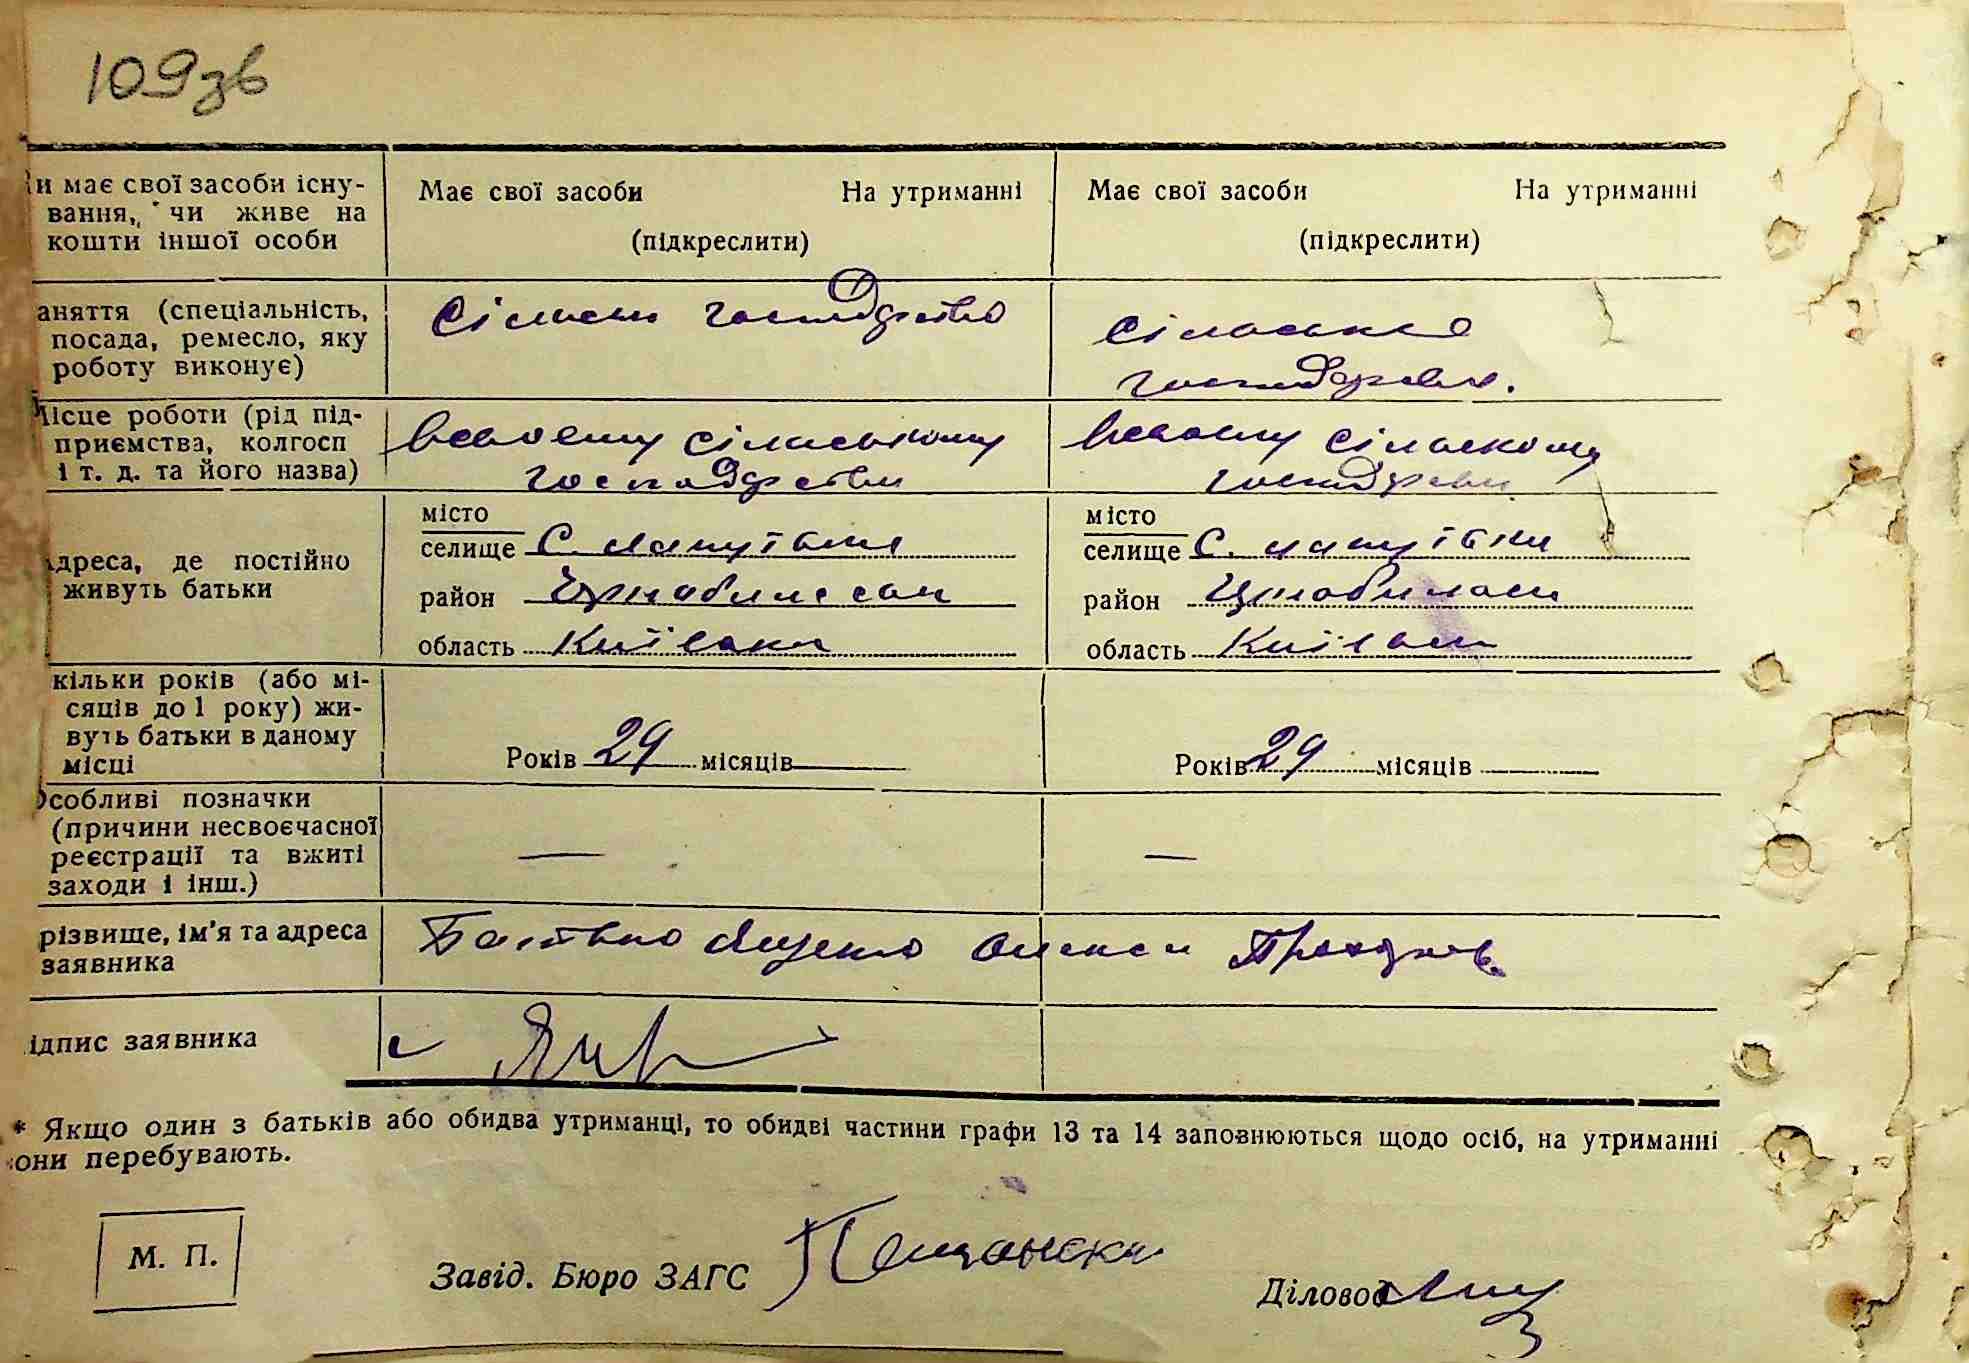 109зв
и має свої засоби існу-
вання, чи живе на
кошти іншої особи
Має свої засоби На утриманні
(підкреслити)
Має свої засоби На утриманні
(підкреслити)
аняття (спеціальність,
посада, ремесло, яку
роботу виконує)
господарство
сільське
Місце роботи (рід під-
приємства, колгосп
і т. д. та його назва)
сільському
господарстві
сільському
адреса, де постійно
живуть батьки
місто
селище С.
район
область Київська
місто
селище С.
район
область Київська
кільки років (або мі-
сяців до 1 року) жи-
вуть батьки в даному
місці
Років 29 місяців
Років 29 місяців
Особливі позначки
(причини несвоєчасної
реєстрації та вжиті
заходи і інш.)
— —
різвище, ім'я та адреса
заявника
ідпис заявника
* Якщо один з батьків або обидва утриманці, то обидві частини графи 13 та 14 заповнюються щодо осіб, на утриманні
они перебувають.
М. П.
Завід. Бюро ЗАГС
Діловод